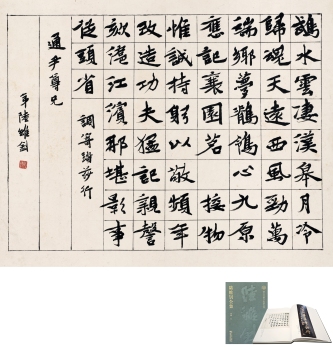 水雲淒漢皋月冷
歸魂天遠西風勁萬
端鄉夢鶺鴒心九原
應記園茗 接物
惟誠持躬以敬頻年
改造功夫猛記親謦
欬滬江濱那堪影事
從頭省 調寄踏莎行
通尹尊兄
弟陸維釗